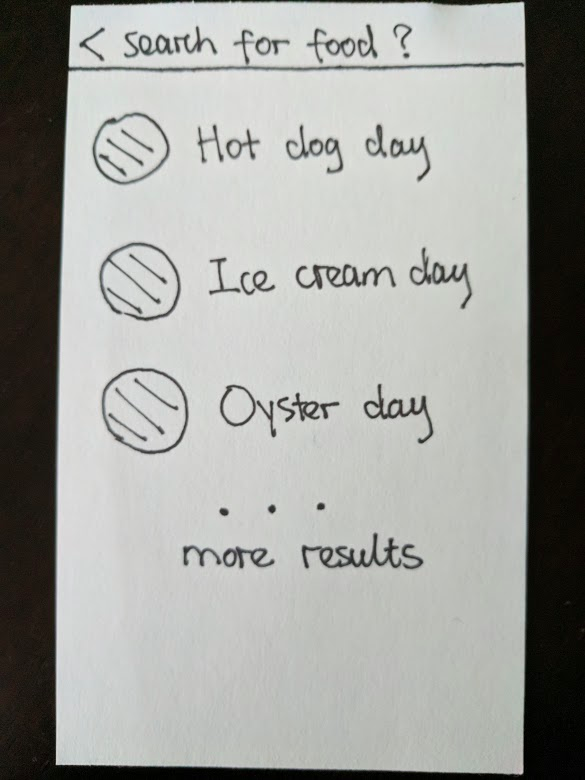 < search for food ?
Hot dog day
Ice cream day
Oyster day
...
more results